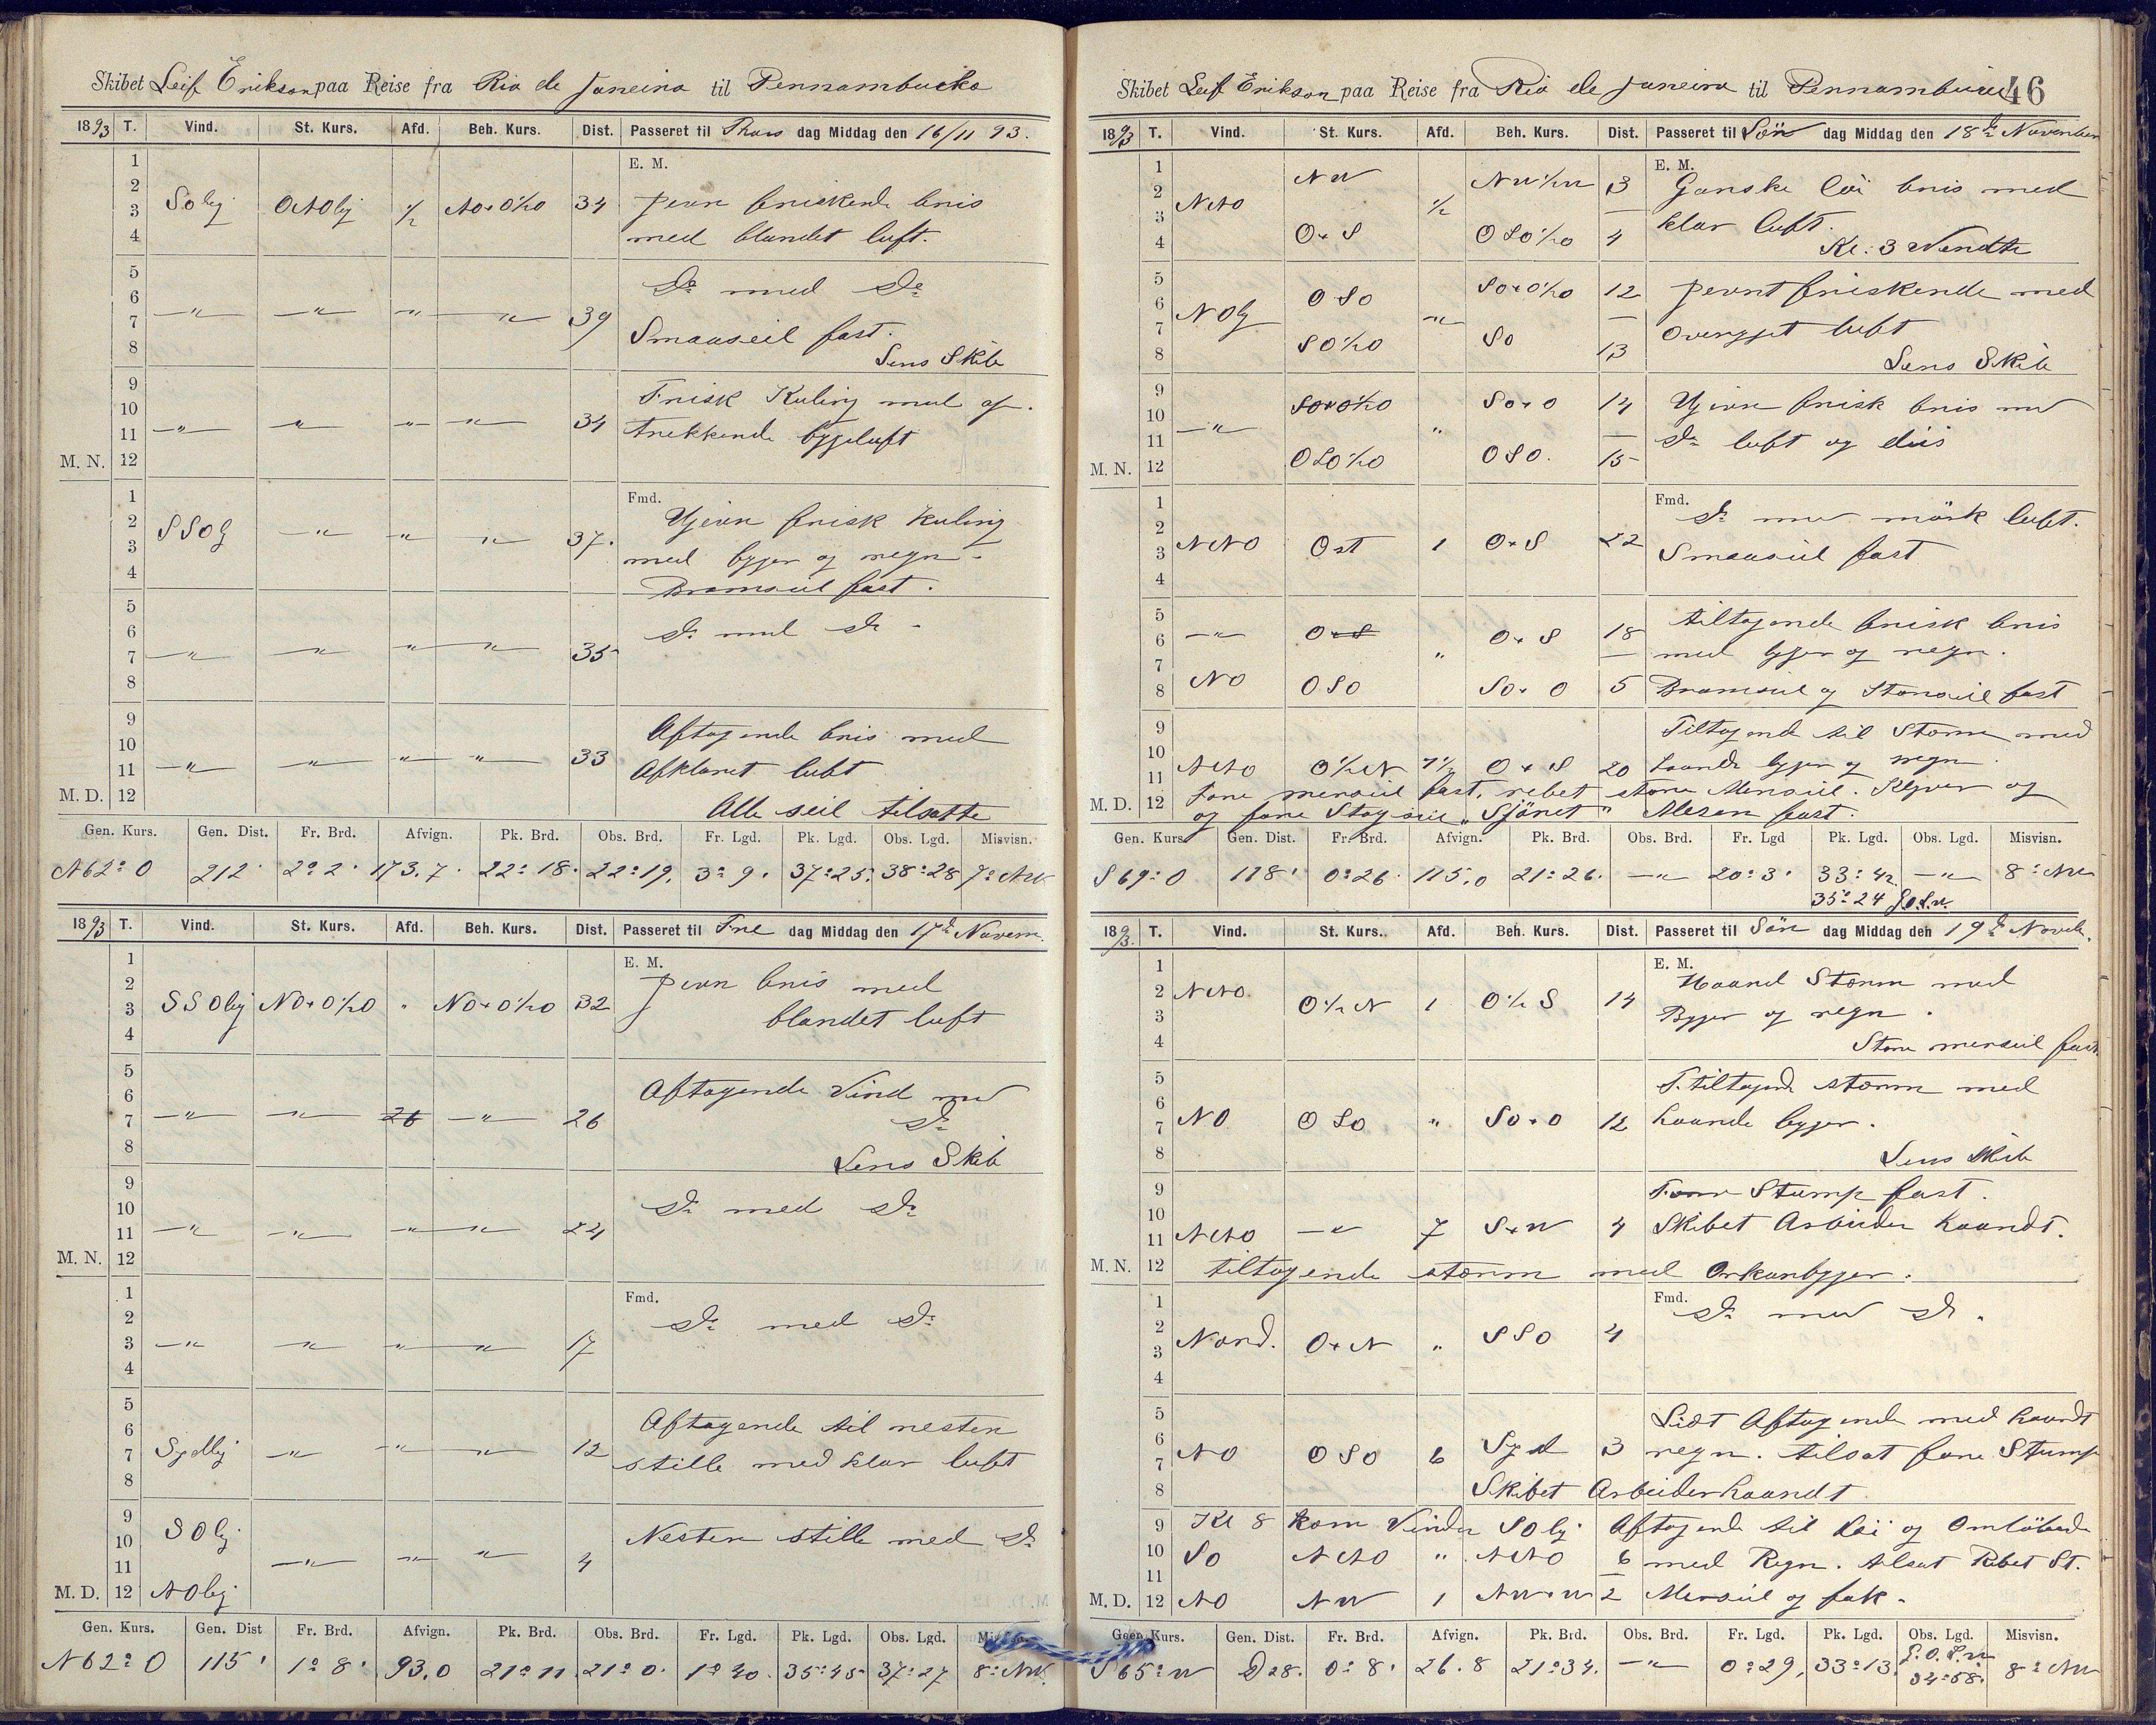 Skibet Leif Erikson paa Reise fra Rio de Janeiro til Pernambucko
1893 T. Vind. St. Kurs. Afd. Beh. Kurs. Dist. Passeret til Thors dag Middag den 16/11 93.
E. M.
1
2
3 So lig ONO lig ½ NO×O½O 34 Jevn friskende bris
4 med blandet luft.
5
6 Do med Do
7 —"— —"— —"— —"— 39 Smaaseil fast.
8 Lens Skib
9 Frisk Kuling med af.
10 trekkende bygeluft
11 —"— —"— —"— —"— 34
M. N. 12
1 Fmd.
2 SSOlig —"— —"— —"— 37. Ujevn frisk Kuling
3 med byger og regn.
4 Bramseil fast.
5
6 Do med Do
7 —"— —"— —"— —"— 35
8
9 Aftagende bris med
10 Afklaret luft
11 —"— —"— —"— —"— 33
M. D. 12 Alle seil tilsatte
Gen. Kurs. Gen. Dist. Fr. Brd. Afvign. Pk. Brd. Obs. Brd. Fr. Lgd. Pk. Lgd. Obs. Lgd. Misvisn.
N 62° O 212' 2° 2' 173.7. 22° 18' 22° 19' 3° 9' 37° 25' 38° 28 7° NW
1893 T. Vind. St. Kurs. Afd. Beh. Kurs. Dist. Passeret til Fre dag Middag den 17de Novem.
E. M.
1
2 Jevn bris med
3 SSOlig NO×O½O " NO×O½O 32 blandet luft
4
5
6 Aftagende Vind med
7 —"— —"— 26 —"— 26 Do
8 Lens Skib
9
10 Do med Do
11 —"— —"— —"— —"— 24
M. N. 12
1 Fmd.
2 Do med Do
3 —"— —"— —"— —"— 17
4
5
6 Aftagende til nesten
7 Sydlig —"— —"— —"— 12 stille med klar luft
8
9 SOlig Nesten stille med Do
10
11 —"— —"— —"— 4
M. D. 12 NOlig
Gen. Kurs. Gen. Dist Fr. Brd. Afvign. Pk. Brd. Obs. Brd. Fr. Lgd. Pk. Lgd. Obs. Lgd. Misvisn.
N 62° O 115' 1° 8' 93.0 21° 11 21° 0' 1° 40. 35° 45 37° 27 8° NW.
46
Skibet Leif Erikson paa Reise fra Rio de Janeiro til Pernambuco
1893 T. Vind. St. Kurs. Afd. Beh. Kurs. Dist. Passeret til Lön dag Middag den 18de November
E. M.
1 NW NW½W 3 Ganske löi bris med
2
3 NNO ½ klar luft.
4 O×S OSO½O 4 Kl: 3 Vendte
5
6 NOlig OSO " SO×O½O 12 Jevnt friskende med
7 overgyet luft
8 SO½O SO 13 Lens Skib
9 SO×O½O SO×O 14 Ujevn frisk bris med
10
11 —"— " Do luft og diis
M. N. 12 OSO½O OSO. 15
1 Fmd.
2 Do med mörk luft.
3 NNO Ost 1 O×S 22 Smaaseil fast
4
5 tiltagende frisk bris
6 —"— O×S " O×S 18 med byger og regn.
7
8 NO OSO SO×O 5 Bramseil og Storseil fast
9 Tiltagende til Storm med
10 haarde byger og regn
11 NNO O½N 1½ O×S 20
M. D. 12 Fore merseil fast, rebet store Merseil. Klyver og
og fore Stagseil "Sjönet" Mesan fast.
Gen. Kurs. Gen. Dist. Fr. Brd. Afvign. Pk. Brd. Obs. Brd. Fr. Lgd Pk. Lgd. Obs. Lgd. Misvisn.
S 69° O 118' 0° 26' 115.0 21° 26' —"— 20° 3' 33° 42 —"— 8° NW
35° 24
1893. T. Vind. St. Kurs. Afd. Beh. Kurs. Dist. Passeret til Sön dag Middag den 19de Noveb.
E. M.
1 Haard Storm med
2 NNO O½N 1 O½S 14 Byger og regn.
3
4 Store merseil fast
5 tiltagend storm med
6
7 NO OSO " SO×O 12 haarde byger.
8 Lens Skib
9 Fore Stump fast.
10
11 NNO —"— 7 S×W 4 Skibet Arbeider haardt.
M. N. 12 tiltagende storm med Orkanbyger.
1 Fmd.
2 Do med Do.
3 Nord. O×N " SSO 4
4
5 Lidt Aftagende med haardt
6
7 NO OSO 6 Syd 3 regn. tilsat fore Stump
8 Skibet Arbeider haardt
9 Kl 8 kom Vinden SOlig Aftagende til löi og Omlöbende
10 SO NNO " NNO 6 med Regn. tilsat Rebet St.
11
M. D. 12 NO NW 1 NW×W 2 Merseil og fok.
Gen. Kurs. Gen. Dist. Fr. Brd. Afvign. Pk. Brd. Obs. Brd. Fr. Lgd. Pk. Lgd. Obs. Lgd. Misvisn.
S 65° W D 28. 0° 8' 26.8 21° 34. —"— 0° 29, 33° 13 34° 58' 8° NW